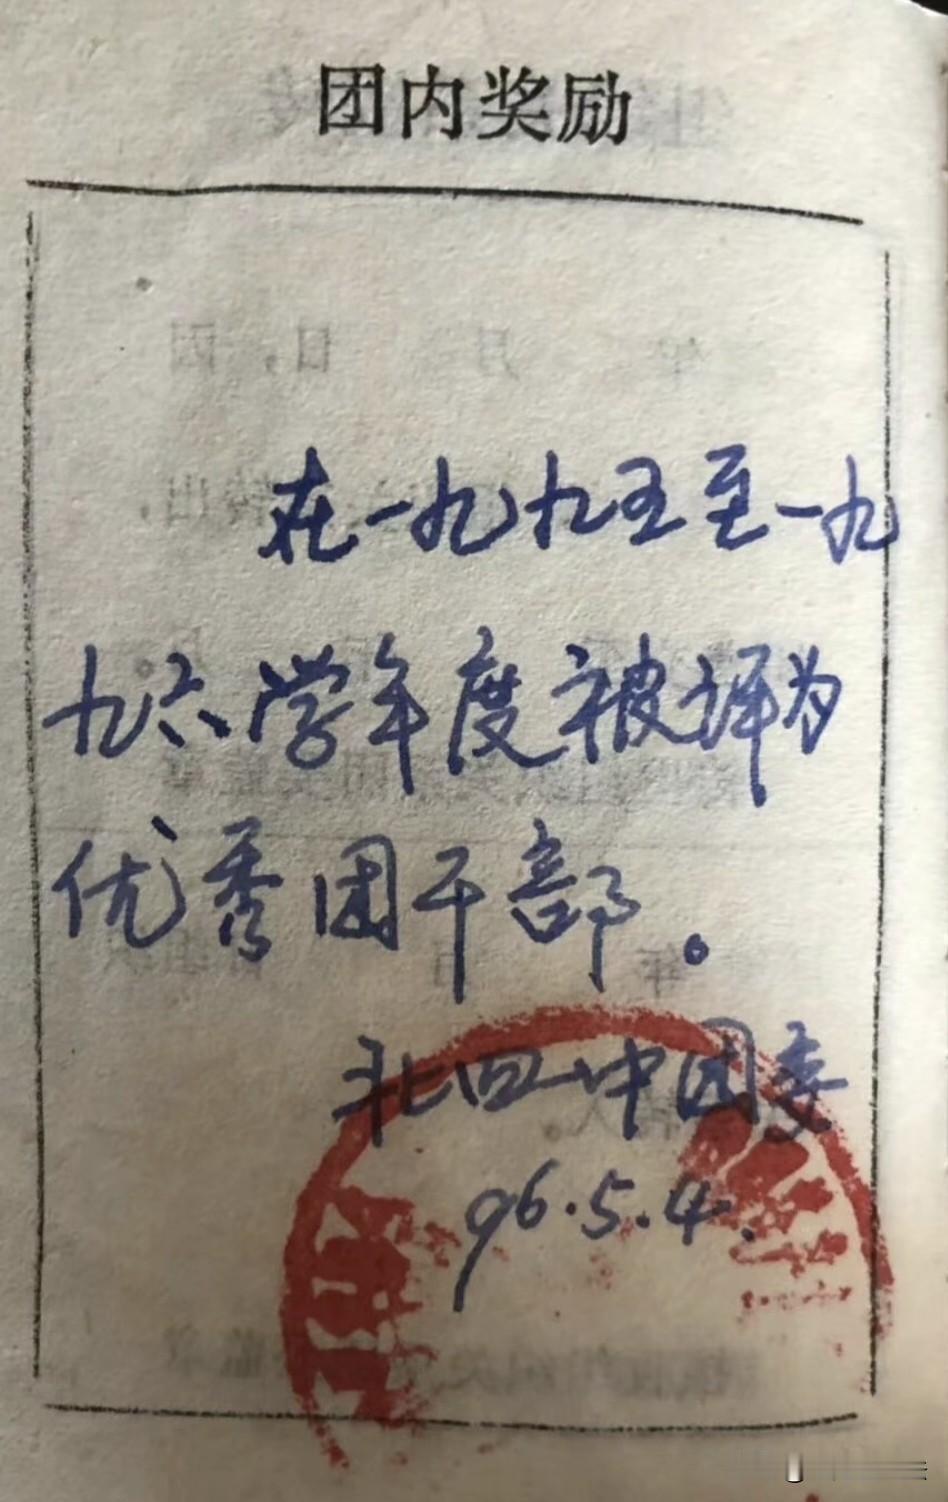 团内奖励
在一九九五至一九
九六学年度被评为
优秀团干部。
北四中团委
96.5.4.